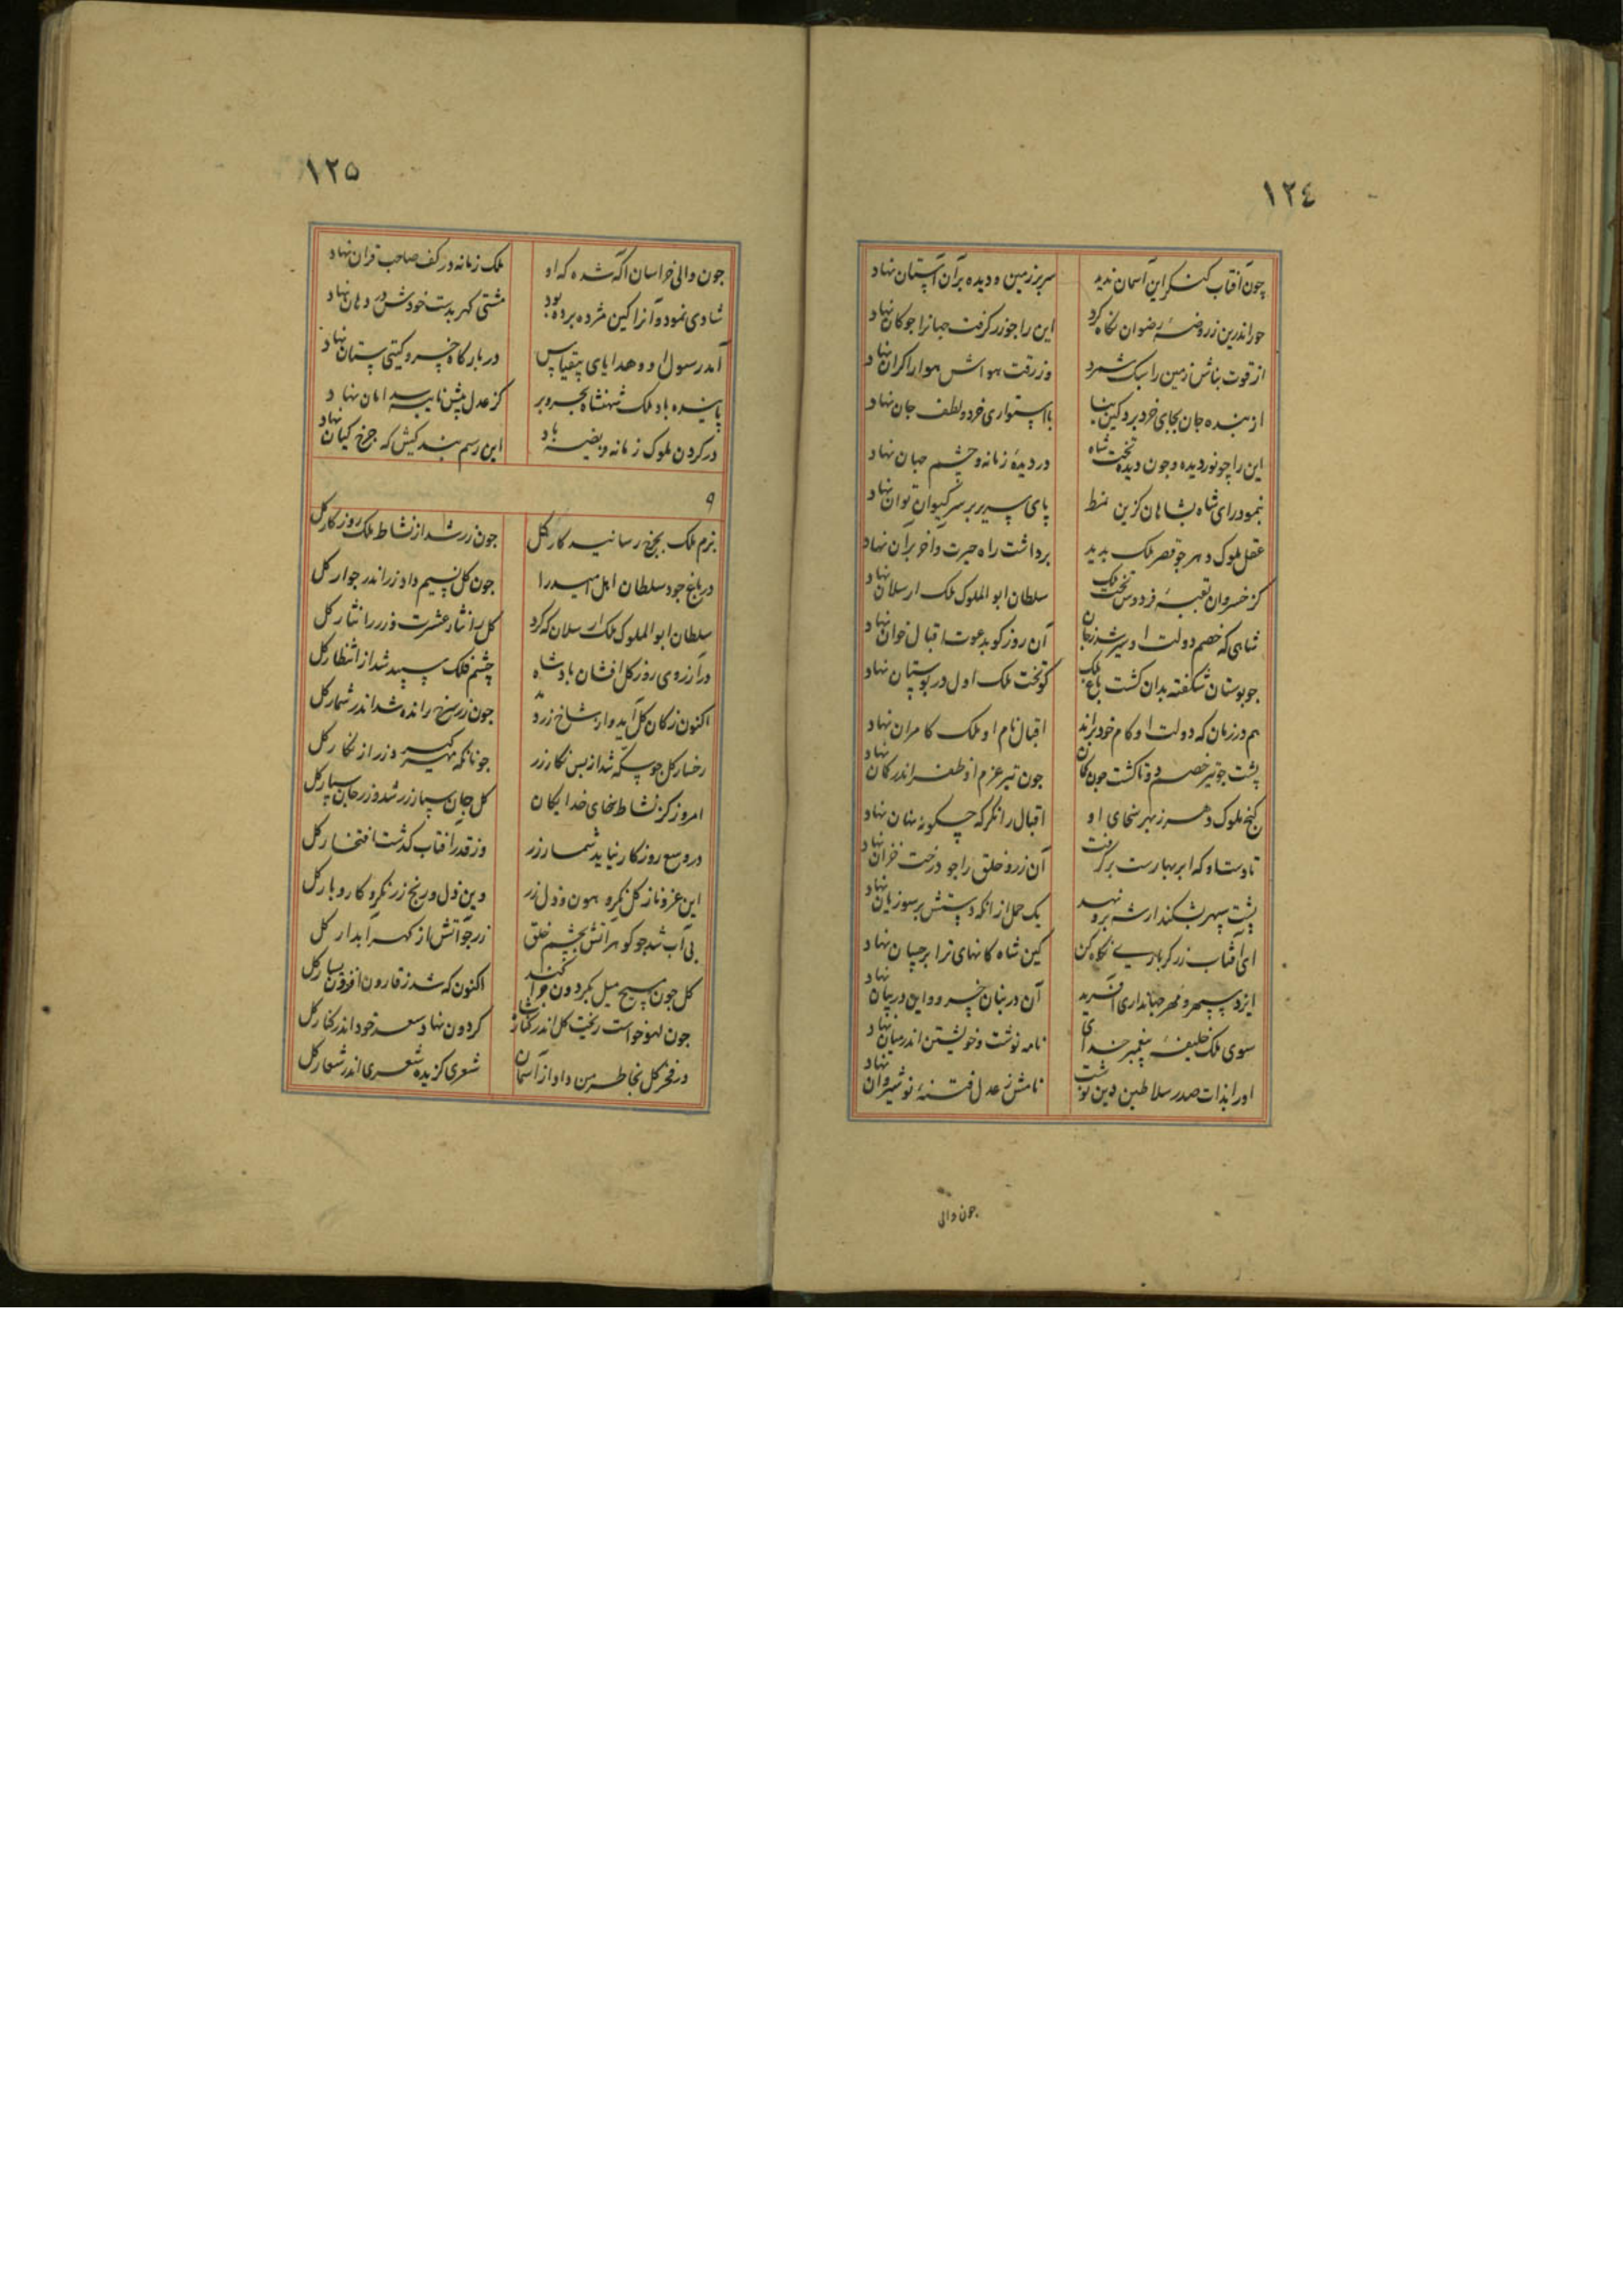 ١٢٤
چون آفتاب کنگر این آسمان ندید سر بر زمین و دیده بر آن آستان نهاد
حور اندرین ز روضهٔ رضوان نگاه کرد این را جو زر گرفت جهانرا جو کان نهاد
از قوت بناش زمین را سبک شمرد وز رقت هواش هوا را گران نهاد
از بنده جان بجای خرد برد کین بنا با استواری خرد و لطف جان نهاد
این را چو نور دیده و جون دیده تخت شاه در دیدهٔ زمانه و چشم جهان نهاد
بنمود رای شاه بشاهان کزین نمط پای سریر بر سر کیوان توان نهاد
عقل ملوک دهر جو قصر ملک بدید برداشت راه حیرت و آخر بر آن نهاد
کز خسروان تعبیهٔ فردوس تخت ملک سلطان ابو الملوک ملک ارسلان نهاد
شاهی که خصم دولت او سیر شد ز جان آن روز کو بدعوت اقبال خوان نهاد
جو بوستان شکفته بدان کشت باغ ملک کو تخت ملک اول در بوستان نهاد
هم در زمان که دولت او کام خود براند اقبال نام او ملک کامران نهاد
پشت جو تیر خصم دوتا کشت جون کمان جون تیر عزم او ظفر اندر کمان نهاد
کنج ملوک دهر ز بهر سخای او اقبال را نگر که چگونه نهان نهاد
تا دست او که ابر بهارست بر گرفت آن زر و خلق را جو درخت خزان نهاد
پشت سپهر بشکند ار شه برو نهد یک حمل از آنکه دستش بر سوزیان نهاد
ای آفتاب زر گر باری نگاه کن کین شاه کانهای ترا بر جسان نهاد
ایزد سپهر و مهر جهانداری آفرید آن در بنان خسرو و این در بیان نهاد
سوی ملک خلیفهٔ پیغمبر خدای نامه نوشت و خویشتن اندر میان نهاد
او را بذات صدر سلاطین دین نوشت نامش ز عدل فتنهٔ نوشیروان نهاد
جون والی
١٢٥
جون والی خراسان آگه شده که او ملک زمانه در کف صاحب قران نهاد
شادی نمود و آنرا کین مژده برده بود مشتی گهر بدست خودش در دهان نهاد
آمد رسول او و هدایای بیقیاس در بارگاه خسرو گیتی ستان نهاد
پاینده باد ملک شهنشاه بحر و بر کز عدل پیش نایبه سد امان نهاد
در گردن ملوک زمانه و بضیه باد این رسم بندگیش که جرخ کیان نهاد
٩
بزم ملک بجرخ رسانید کار گل جون زر شد از نشاط ملک روزگار گل
در باغ جود سلطان اهل امید را جون گل نسیم داد زر اندر جوار گل
سلطان ابو الملوک ملک ارسلان که کرد گل را نثار عشرت و زر را نثار گل
در آرزوی روز گل افشان بادشاه چشم فلک سپید شد از انتظار گل
اکنون ز کان گل آید و از شاخ زرد جون زر سرخ رانده شد اندر شمار گل
رخسار گل جو سکه شد از بس نگار زر جونانکه مهر گیرد زر از نگار گل
امروز کز نشاط سخای خدایگان گل جان سپار زر شد و زر جان سپار گل
در وسع روزگار نیاید شمار زر وز قدر آفتاب گذشت افتخار گل
این عز و ناز گل نگر و هون و ذل زر وین ذل و رنج زر نگر و کار و بار گل
بی آب شد جو گوهر آتش بچشم خلق زر جو آتش از گهر آبدار گل
گل جون مسیح میل بگردون جرا کند اکنون که شد ز قارون افزون یسار گل
جون لهو خواست ریخت گل اندر کنار گردون نهاد سعد خود اندر کنار گل
در فخر گل بخاطر من داد از آسمان شعری گزیده شعری اندر شعار گل